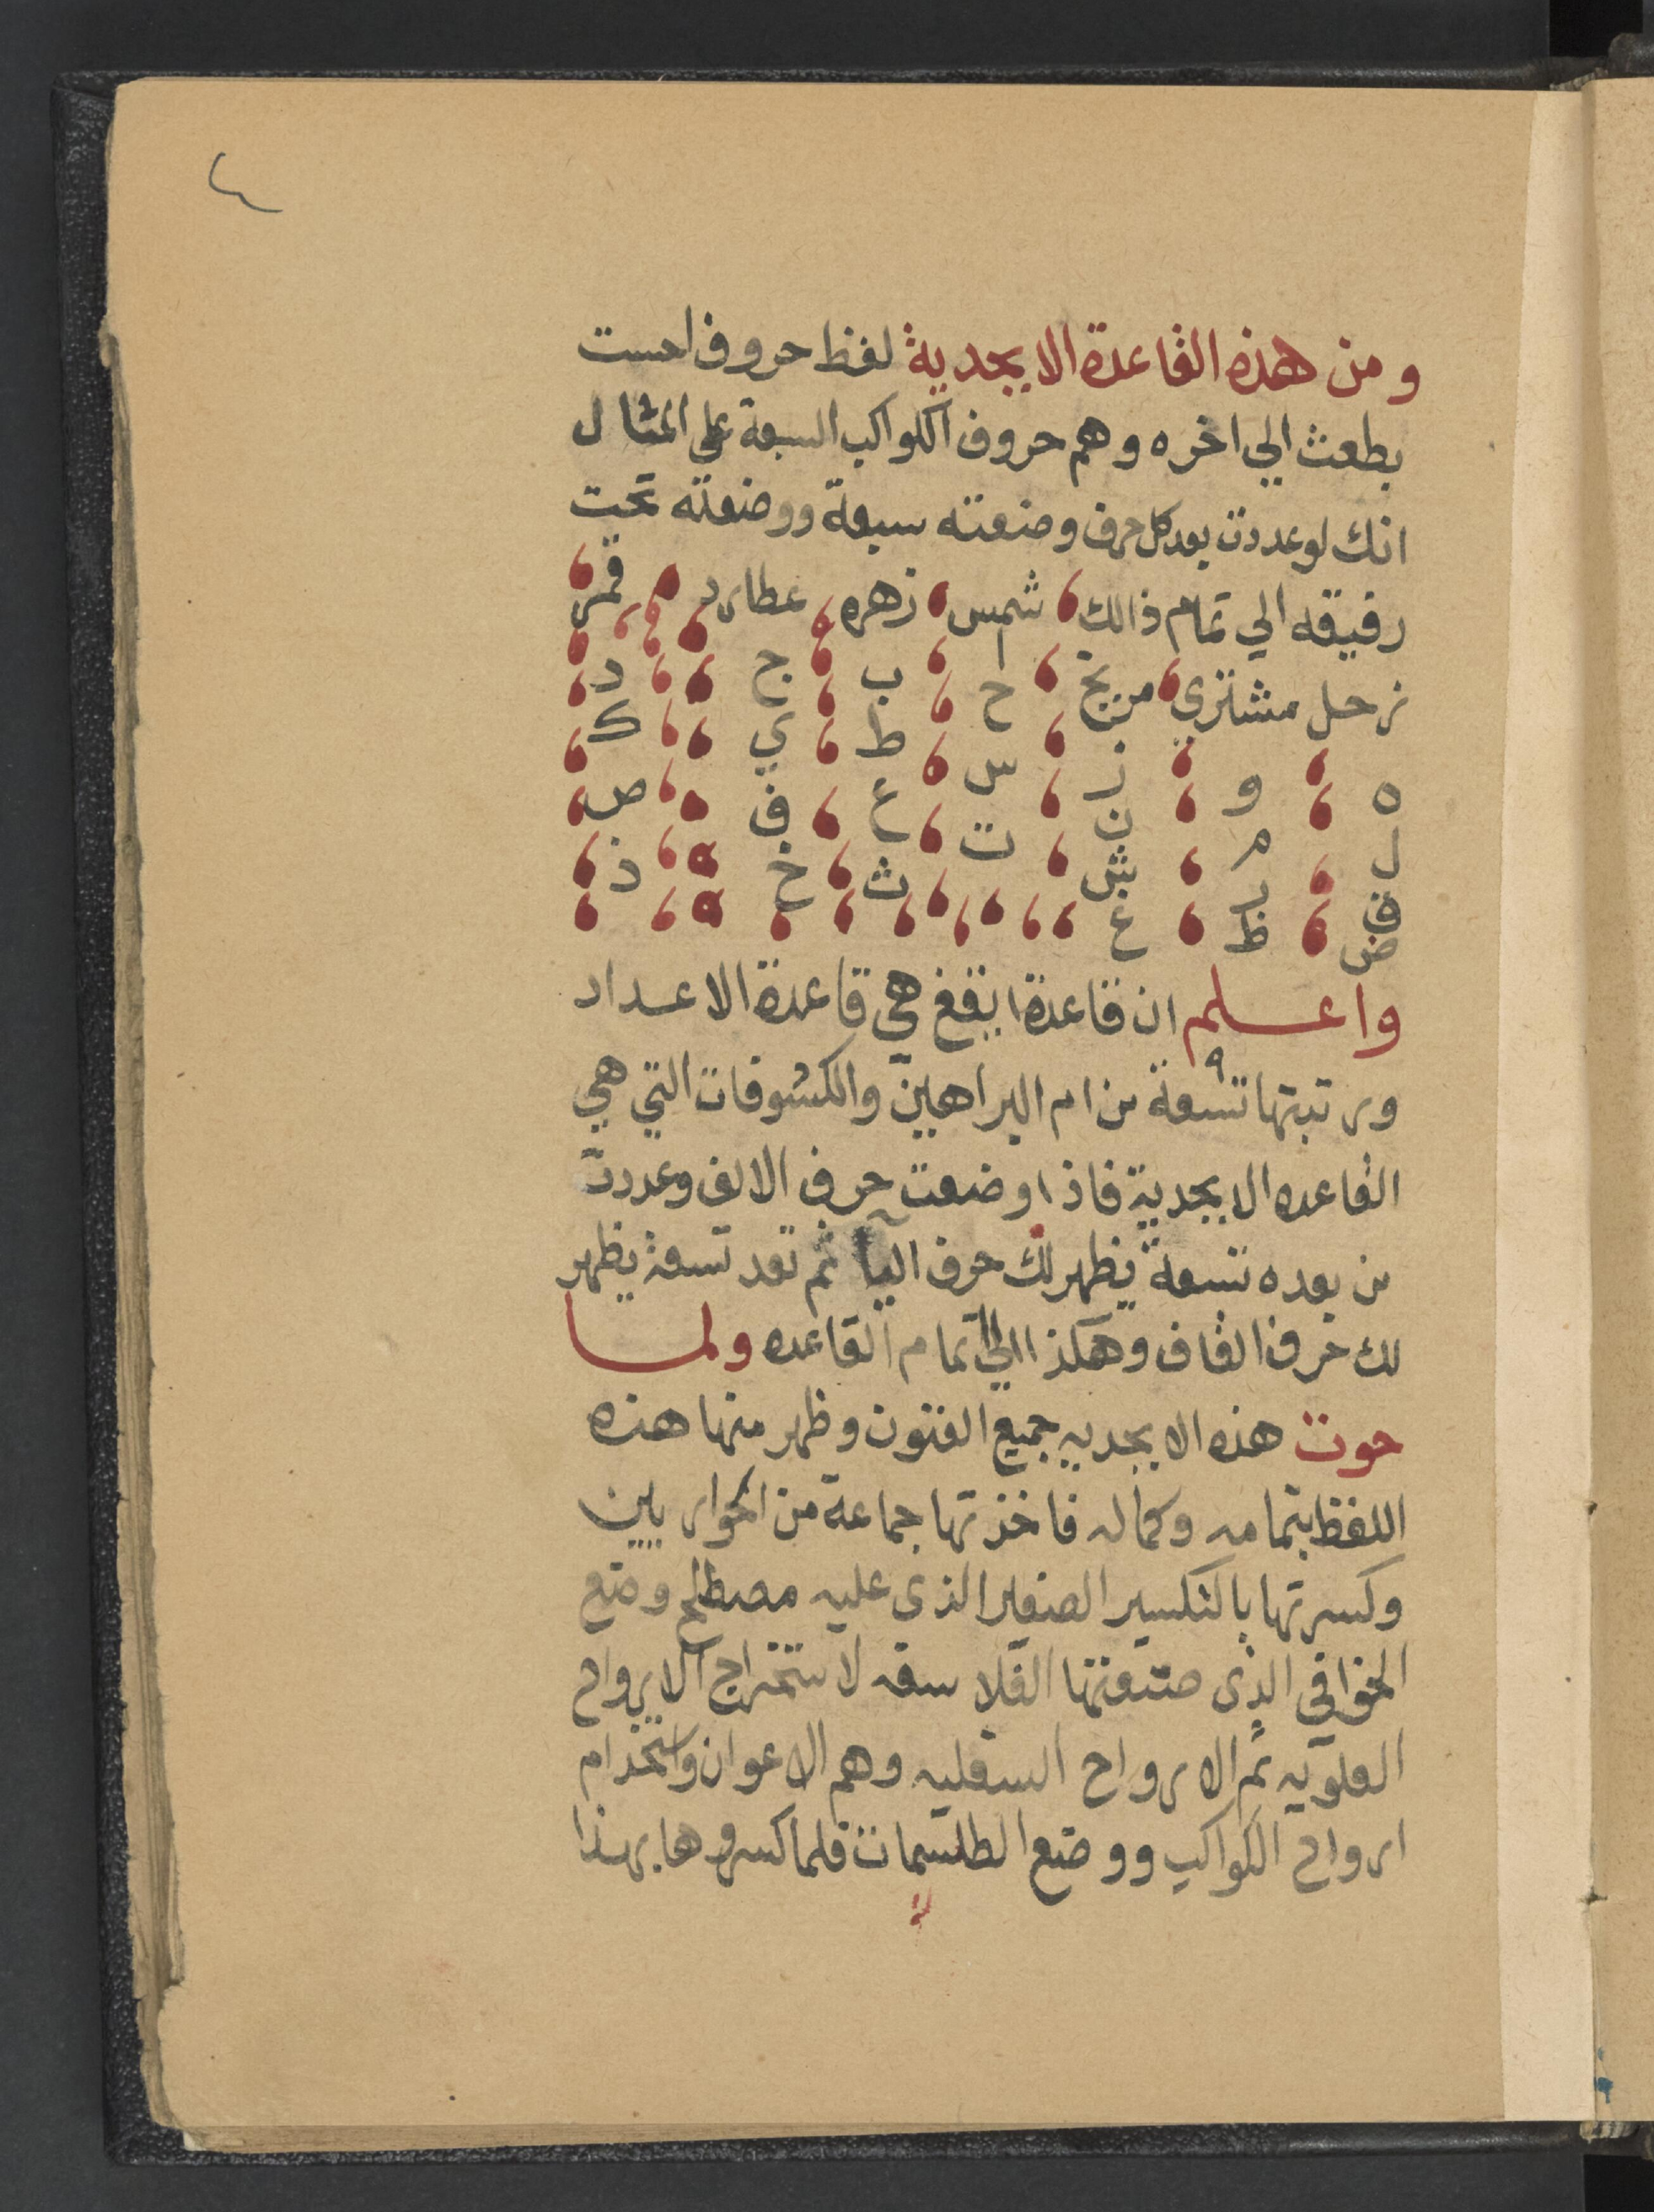 ٤
ومن هذه القاعدة الابجدية لفظ حروف احست
بطعث الي اخره وهم حروف الكواكب السبعة علي المثال
انك لو عددت بعد كل حرف وضعته سبعة ووضعته تحت
رفيقه الي تمام ذالك شمس زهره عطارد قمر
زحل مشتري مريخ ا ب ج د
ح ط ي ك
ه و ز س ع ف ص
ل م ن ت ث خ ذ
ق ر ش
ض ظ غ
واعلم ان قاعدة ايقغ هي قاعدة الاعداد
٩
ورتبتها تسعة من ام البراهين والكشوفات التي هي
القاعده الابجدية فاذا وضعت حرف الالف وعددت
من بعده تسعة يظهر لك حرف اليا ثم تعد تسعة يظهر
لك حرف القاف وهكذا الي تمام القاعده ولما
حوت هذه الابجديه جميع الفنون وظهر منها هذه
اللفظ بتمامه وكماله فاخذتها جماعة من الحواريين
وكسرتها بالتكسير الصغير الذى عليه مصطلح وضع
الخوافي الذى صنعتها الفلاسفه لاستخراج الارواح
العلويه ثم الارواح السفليه وهم الاعوان واستخدام
ارواح الكواكب ووضع الطلسمات فلما كسروها بهذا